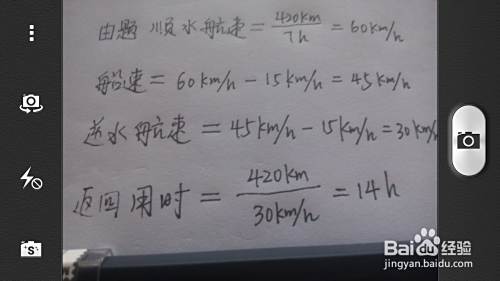 由题 顺水航速 = 420km / 7h = 60km/h
船速 = 60km/h - 15km/h = 45km/h
逆水航速 = 45km/h - 15km/h = 30km/h
返回用时 = 420km / 30km/h = 14h
Baidu经验
jingyan.baidu.com